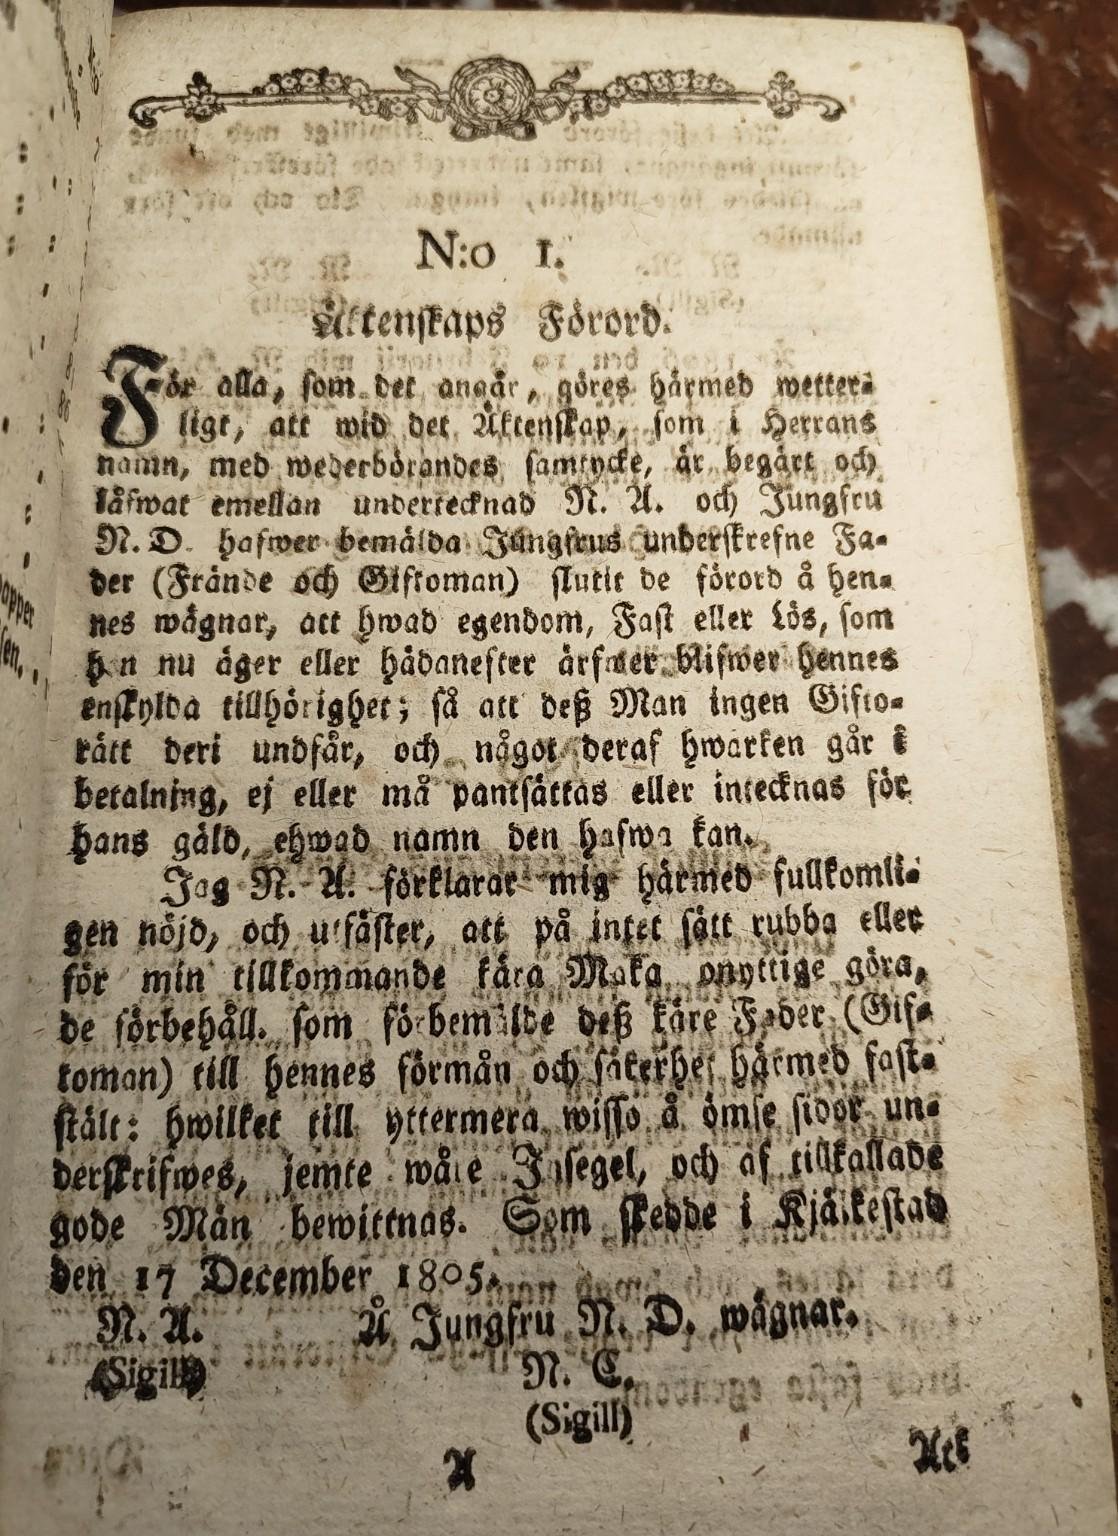 N:o 1.
Äktenskaps Förord.
För alla, som det angår, göres härmed wetter-
ligt, att wid det Äktenskap, som i Herrans
namn, med wederbörandes samtycke, är begärt och
låfwat emellan undertecknad N. A. och Jungfru
N. D. hafwer bemälda Jungfrus underskrefne Fa-
der (Frände och Giftoman) slutit de förord å hen-
nes wägnar, att hwad egendom, Fast eller Lös, som
hon nu äger eller hädanefter ärfwer blifwer hennes
enskylda tillhörighet; så att deß Man ingen Gifto-
rätt deri undfår, och något deraf hwarken går i
betalning, ej eller må pantsättas eller intecknas för
hans gäld, ehwad namn den hafwa kan.
Jag N. A. förklarar mig härmed fullkomli-
gen nöjd, och utfäster, att på intet sätt rubba eller
för min tillkommande kära Maka onyttige göra,
de förbehåll. som förbemälde deß käre Fader (Gif-
toman) till hennes förmån och säkerhet härmed fast-
stält: hwilket till yttermera wisso å ömse sidor un-
derskrifwes, jemte wåre Insegel, och af tillkallade
gode Män bewittnas. Som skedde i Kjälkestad
den 17 December 1805.
N. A. Å Jungfru N. D. wägnar.
(Sigill) N. C.
(Sigill)
A Ätk